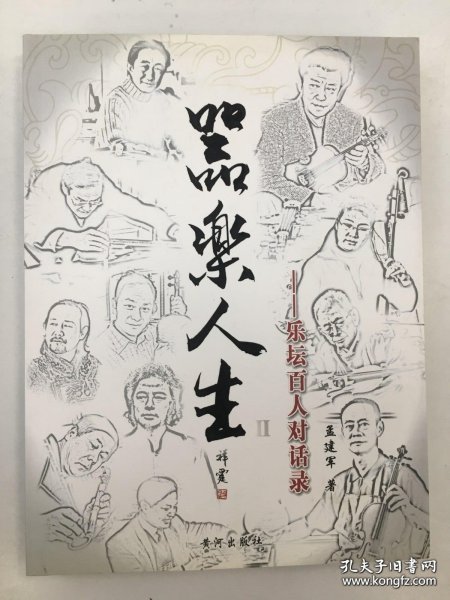 器樂人生
II
祥霆
——乐坛百人对话录
孟建军 著
黄河出版社
孔夫子旧书网
www.kongfz.com